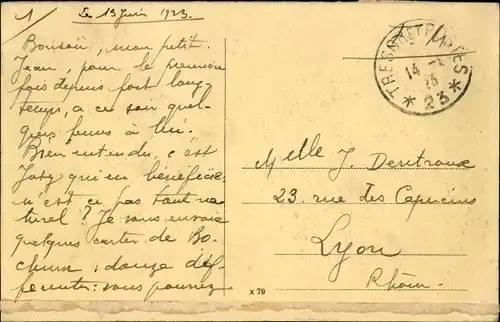 1/
Le 13 Juin 1923.
Bonsoir, mon petit
Jean, pour le premier
fois depuis fort long-
temps, a ce soir quel-
ques à lui.
Bien entendu, c'est
qui en bénéficie,
n'est ce pas tout na-
turel ? Je vous envoie
quelques cartes de Bo-
chum ; douze dif-
férentes ; vous pourrez
TRESOR ET POSTES
14
23
* 23 *
Melle J. Dentroux
23, rue des Capucins
Lyon
Rhône.
x 79